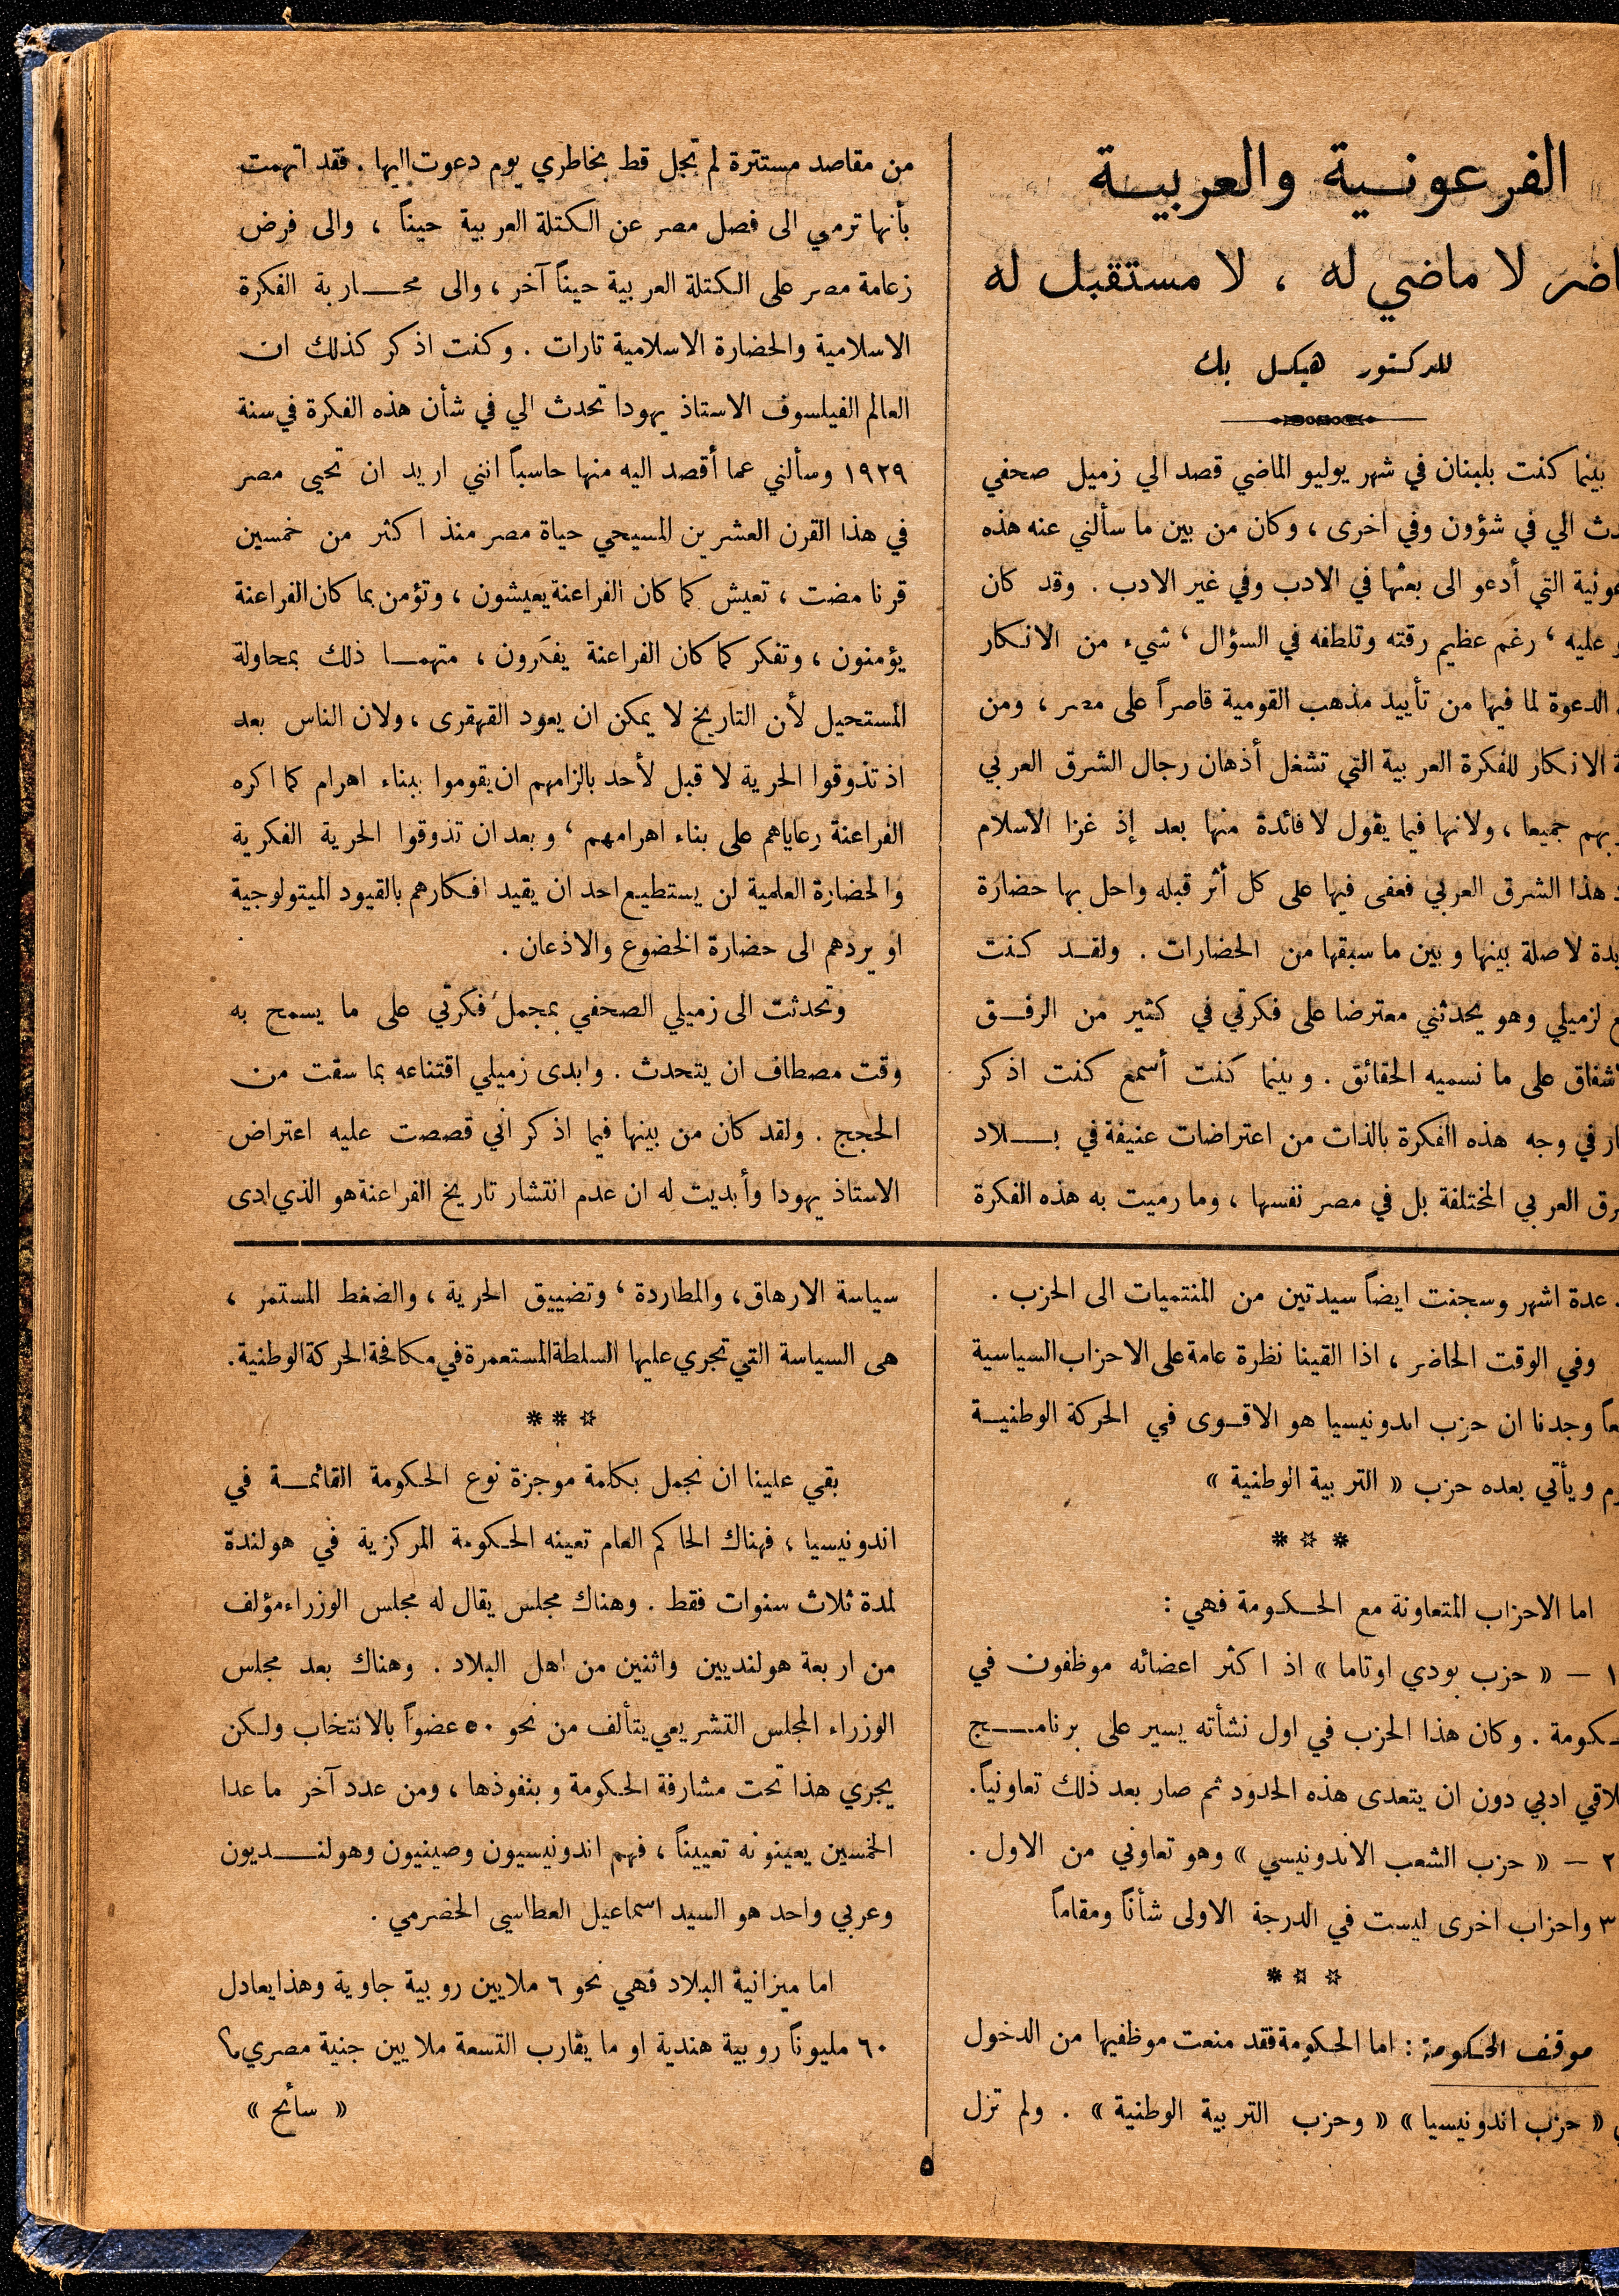 الفرعونية والعربية
لا ماضي له ، لا مستقبل له
للدكتور هيكل بك
بينما كنت بلبنان في شهر يوليو الماضي قصد الي زميل صحفي
الي في شؤون وفي اخرى ، وكان من بين ما سألني عنه هذه
التي أدعو الى بعثها في الادب وفي غير الادب . وقد كان
عليه ، رغم عظيم رقته وتلطفه في السؤال ، شيء من الانكار
الدعوة لما فيها من تأييد مذهب القومية قاصراً على مصر ، ومن
الانكار للفكرة العربية التي تشغل أذهان رجال الشرق العربي
جميعا ، ولانها فيما يقول لا فائدة منها بعد إذ غزا الاسلام
هذا الشرق العربي فعفى فيها على كل أثر قبله واحل بها حضارة
لا صلة بينها وبين ما سبقها من الحضارات . ولقد كنت
لزميلي وهو يحدثني معترضا على فكرتي في كثير من الرفق
على ما نسميه الحقائق . وبينما كنت أسمع كنت اذكر
في وجه هذه الفكرة بالذات من اعتراضات عنيفة في بلاد
العربي المختلفة بل في مصر نفسها ، وما رميت به هذه الفكرة
من مقاصد مستترة لم تجل قط بخاطري يوم دعوت اليها . فقد اتهمت
بأنها ترمي الى فصل مصر عن الكتلة العربية حيناً ، والى فرض
زعامة مصر على الكتلة العربية حيناً آخر ، والى محاربة الفكرة
الاسلامية والحضارة الاسلامية تارات . وكنت اذكر كذلك ان
العالم الفيلسوف الاستاذ يهودا تحدث الي في شأن هذه الفكرة في سنة
١٩٢٩ وسألني عما أقصد اليه منها حاسباً انني اريد ان تحيى مصر
في هذا القرن العشرين المسيحي حياة مصر منذ اكثر من خمسين
قرنا مضت ، تعيش كما كان الفراعنة يعيشون ، وتؤمن بما كان الفراعنة
يؤمنون ، وتفكر كما كان الفراعنة يفكرون ، متهما ذلك بمحاولة
المستحيل لأن التاريخ لا يمكن ان يعود القهقرى ، ولان الناس بعد
اذ تذوقوا الحرية لا قبل لأحد بالزامهم ان يقوموا ببناء اهرام كما اكره
الفراعنة رعاياهم على بناء اهرامهم ، وبعد ان تذوقوا الحرية الفكرية
والحضارة العلمية لن يستطيع احد ان يقيد افكارهم بالقيود الميتولوجية
او يردهم الى حضارة الخضوع والاذعان .
وتحدثت الى زميلي الصحفي بمجمل فكرتي على ما يسمح به
وقت مصطاف ان يتحدث . وابدى زميلي اقتناعه بما سقت من
الحجج . ولقد كان من بينها فيما اذكر اني قصصت عليه اعتراض
الاستاذ يهودا وأبديت له ان عدم انتشار تاريخ الفراعنة هو الذي ادى
عدة اشهر وسجنت ايضاً سيدتين من المنتميات الى الحزب .
وفي الوقت الحاضر ، اذا القينا نظرة عامة على الاحزاب السياسية
وجدنا ان حزب اندونيسيا هو الاقوى في الحركة الوطنية
ويأتي بعده حزب « التربية الوطنية »
* * *
اما الاحزاب المتعاونة مع الحكومة فهي :
١ — « حزب بودي اوتاما » اذ اكثر اعضائه موظفون في
. وكان هذا الحزب في اول نشأته يسير على برنامج
ادبي دون ان يتعدى هذه الحدود ثم صار بعد ذلك تعاونياً .
٢ — « حزب الشعب الاندونيسي » وهو تعاوني من الاول .
٣ واحزاب اخرى ليست في الدرجة الاولى شأناً ومقاماً
* * *
موقف الحكومة : اما الحكومة فقد منعت موظفيها من الدخول
« حزب اندونيسيا » « وحزب التربية الوطنية » . ولم تزل
سياسة الارهاق ، والمطاردة ، وتضييق الحرية ، والضغط المستمر ،
هى السياسة التي تجري عليها السلطة المستعمرة في مكافحة الحركة الوطنية .
* * *
بقي علينا ان نجمل بكلمة موجزة نوع الحكومة القائمة في
اندونيسيا ، فهناك الحاكم العام تعينه الحكومة المركزية في هولندة
لمدة ثلاث سنوات فقط . وهناك مجلس يقال له مجلس الوزراء مؤلف
من اربعة هولنديين واثنين من اهل البلاد . وهناك بعد مجلس
الوزراء المجلس التشريعي يتألف من نحو ٥٠ عضواً بالانتخاب ولكن
يجري هذا تحت مشارفة الحكومة وبنفوذها ، ومن عدد آخر ما عدا
الخمسين يعينونه تعييناً ، فهم اندونيسيون وصينيون وهولنديون
وعربي واحد هو السيد اسماعيل العطاسي الحضرمي .
اما ميزانية البلاد فهي نحو ٦ ملايين روبية جاوية وهذا يعادل
٦٠ مليوناً روبية هندية او ما يقارب التسعة ملايين جنية مصري
« سائح »
٥